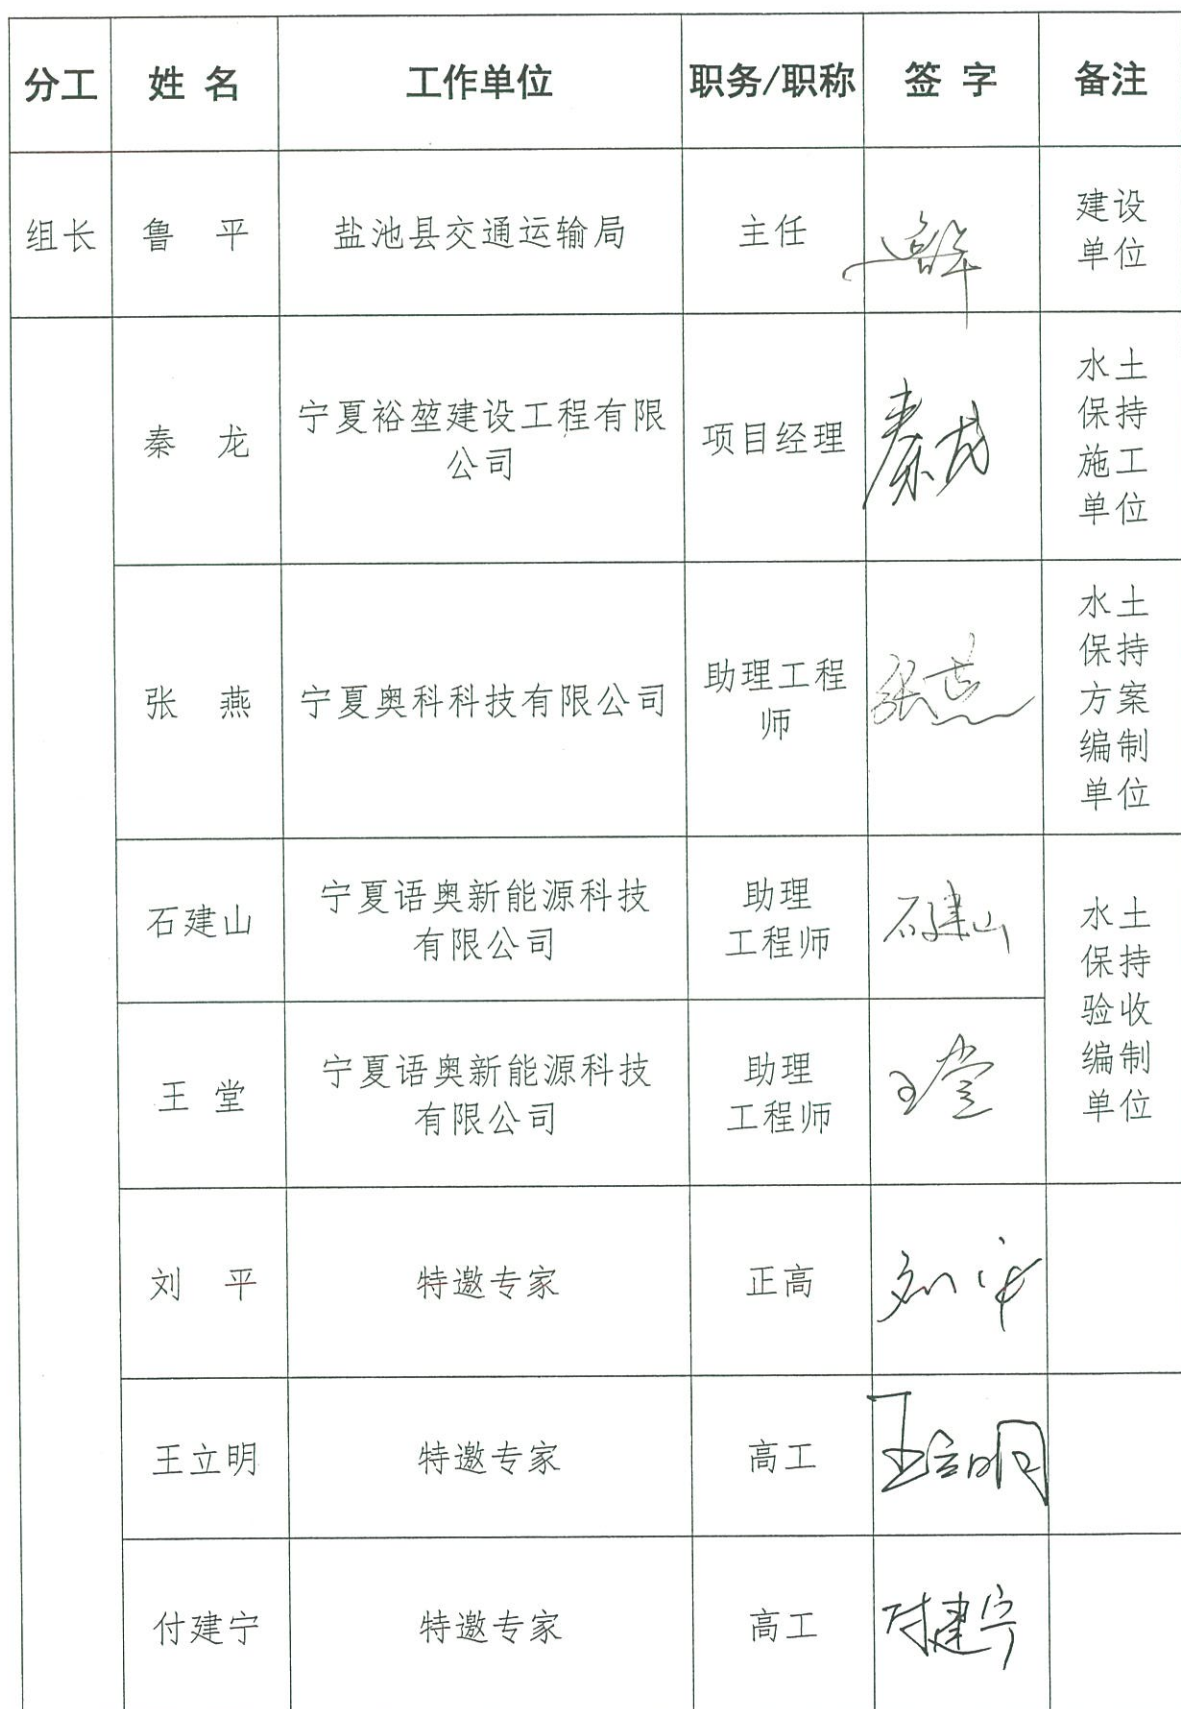 分工 姓 名 工作单位 职务/职称 签 字 备注
组长 鲁 平 盐池县交通运输局 主任 建设
单位
秦 龙 宁夏裕堃建设工程有限
公司 项目经理 秦龙 水土
保持
施工
单位
张 燕 宁夏奥科科技有限公司 助理工程
师 张燕 水土
保持
方案
编制
单位
石建山 宁夏语奥新能源科技
有限公司 助理
工程师 石建山 水土
保持
验收
编制
单位
王 堂 宁夏语奥新能源科技
有限公司 助理
工程师 王堂
刘 平 特邀专家 正高 刘平
王立明 特邀专家 高工 王立明
付建宁 特邀专家 高工 付建宁